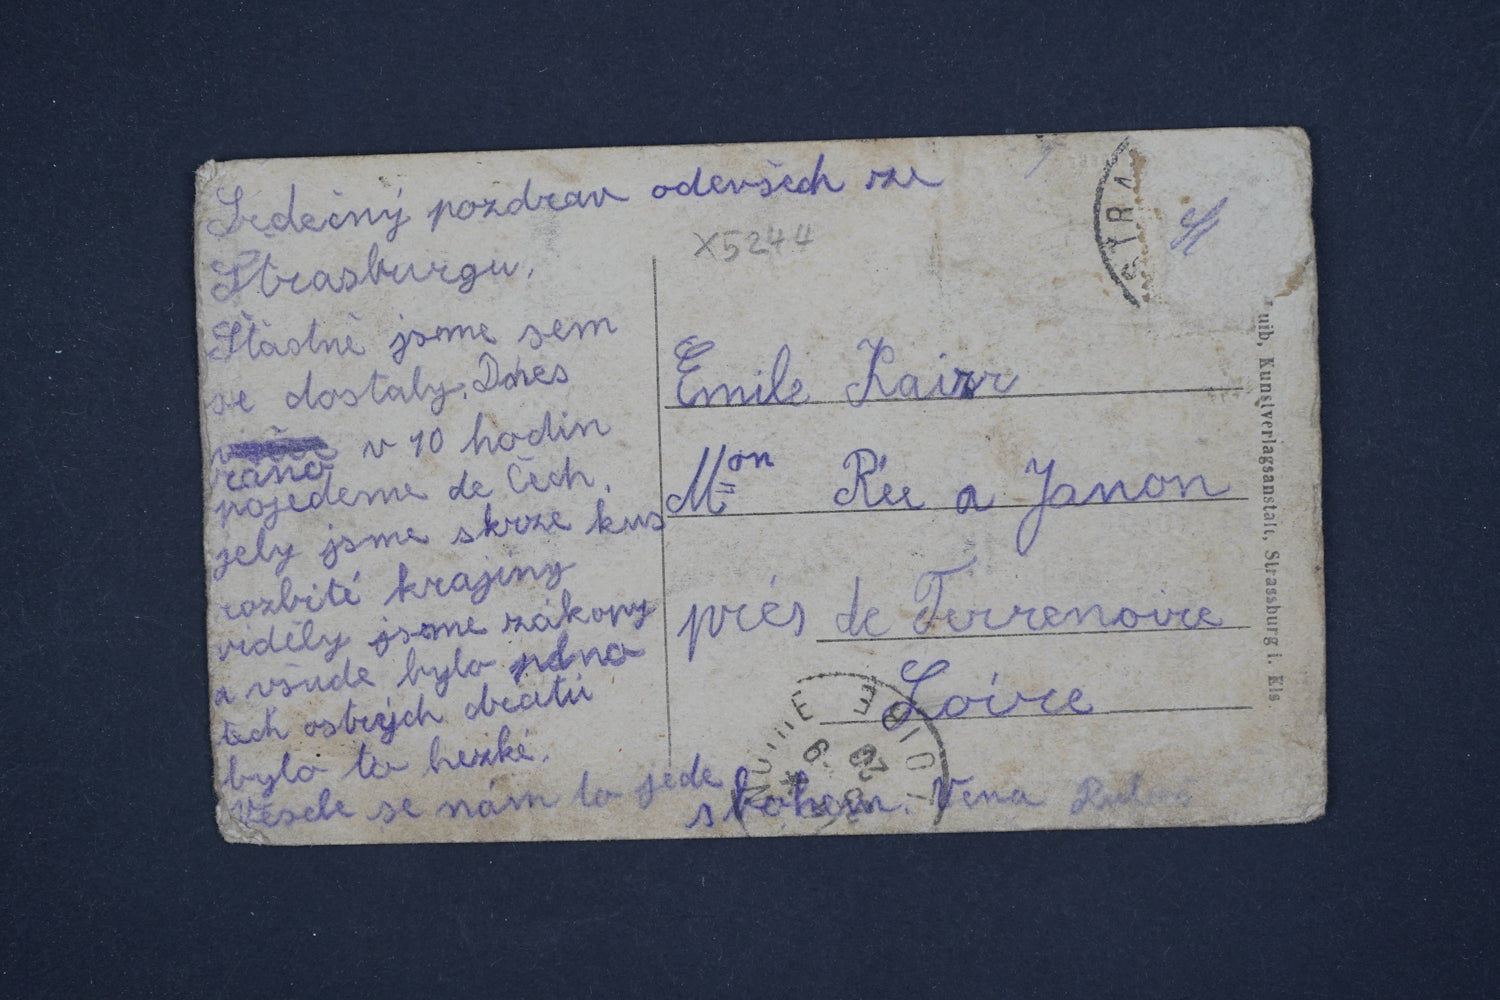 Srdečný pozdrav odevšech ze
Strasburgu.
Štastně jsme sem
se dostaly. Dnes
v 10 hodin
ráno
pojedeme de Čech.
jely jsme skrze kus
rozbité krajiny
viděly jsme zákopy
a všude bylo plno
těch ostrých dratů
bylo to hezké.
Vesele se nám to jede
sbohem. Vena
X5244
STRA
Emile Kaizr
Mon Rée a Janon
prés de Terrenoire
Loire
uib, Kunstverlagsanstalt, Strassburg i. Els.
NOIRE
LOIRE